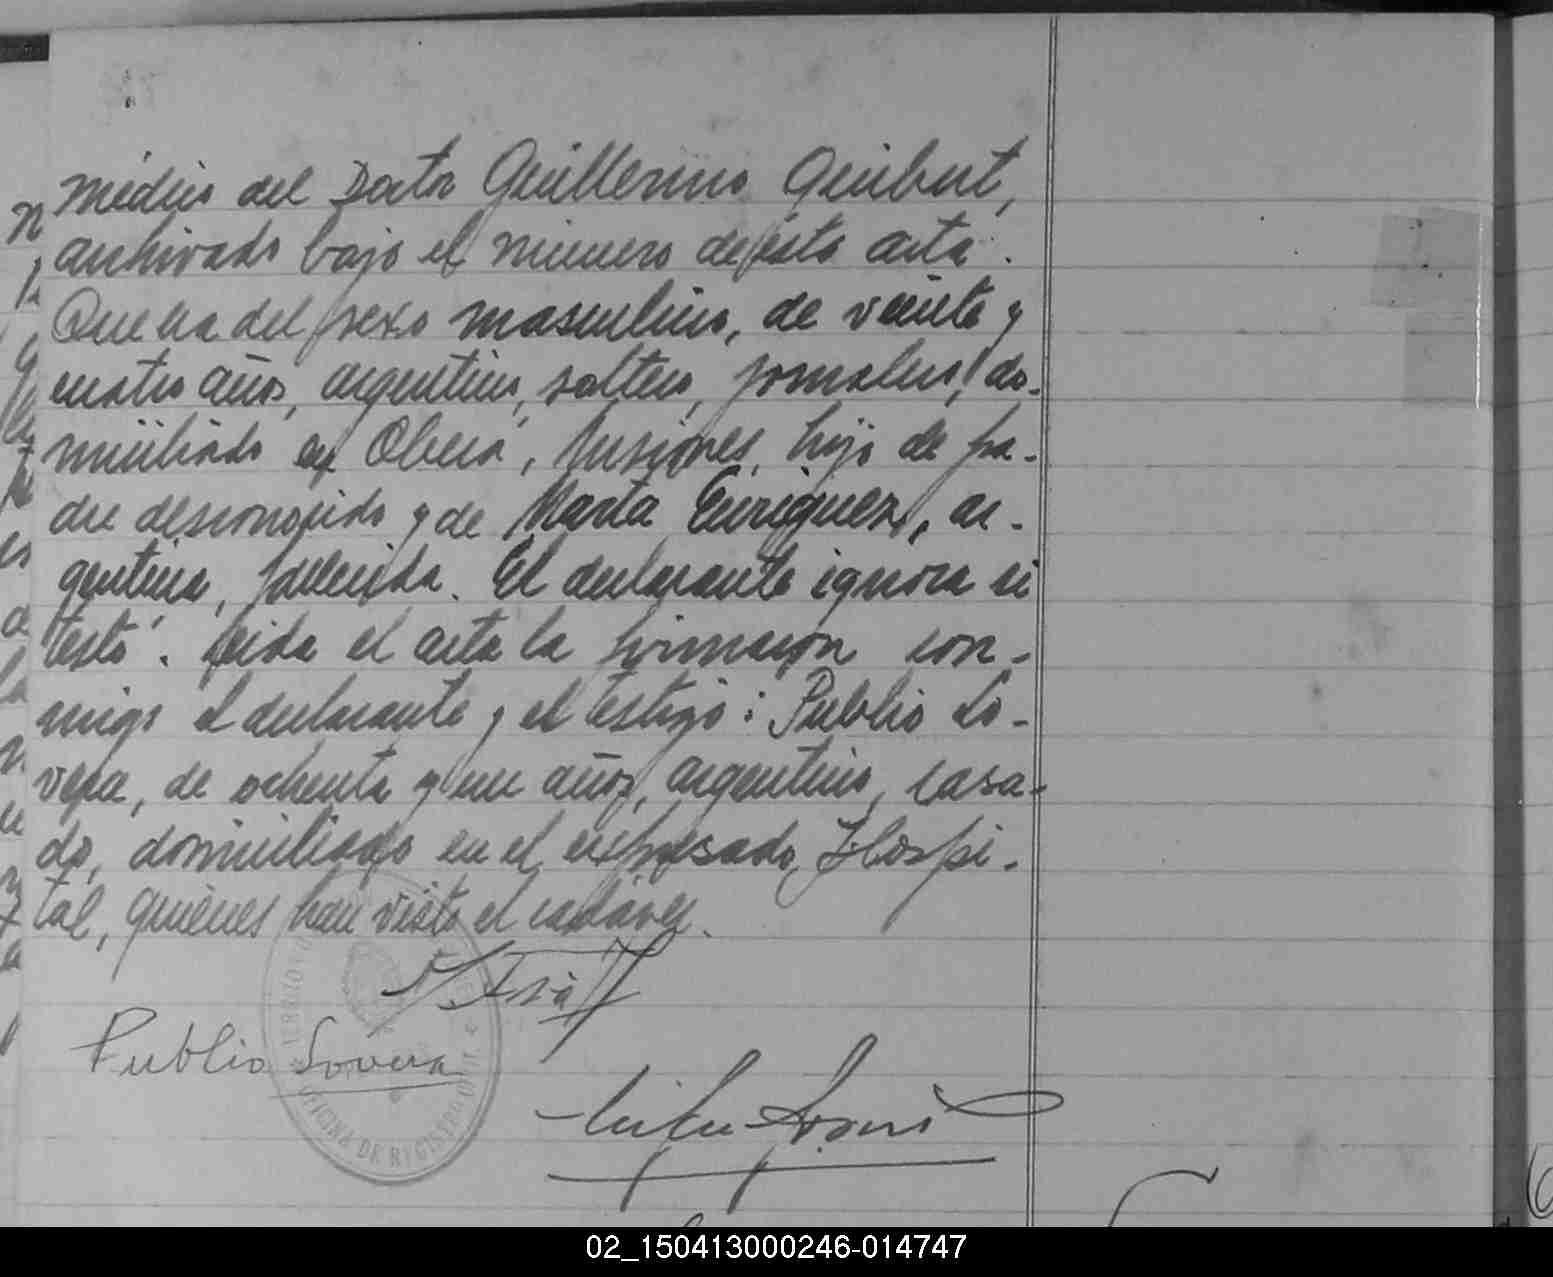 médico del Doctor Guillermo
archivado bajo el número de ésta acta.
Que era del sexo masculino, de veinte y
cuatro años, argentino, soltero, jornalero, do-
miciliado en Oberá, Misiones, hijo de pa-
dre desconocido y de María Enriquez, ar-
gentina, fallecida. El declarante ignora si
testó. Leida el acta la firmaron con-
migo el declarante y el testigo: Publio Lo-
vera, de ochenta y un años, argentino, casa-
do, domiciliado en el expresado Hospi-
tal, quiénes han visto el cadáver.
Publio Lovera
OFICINA DE REGISTRO CIVIL
02_150413000246-014747